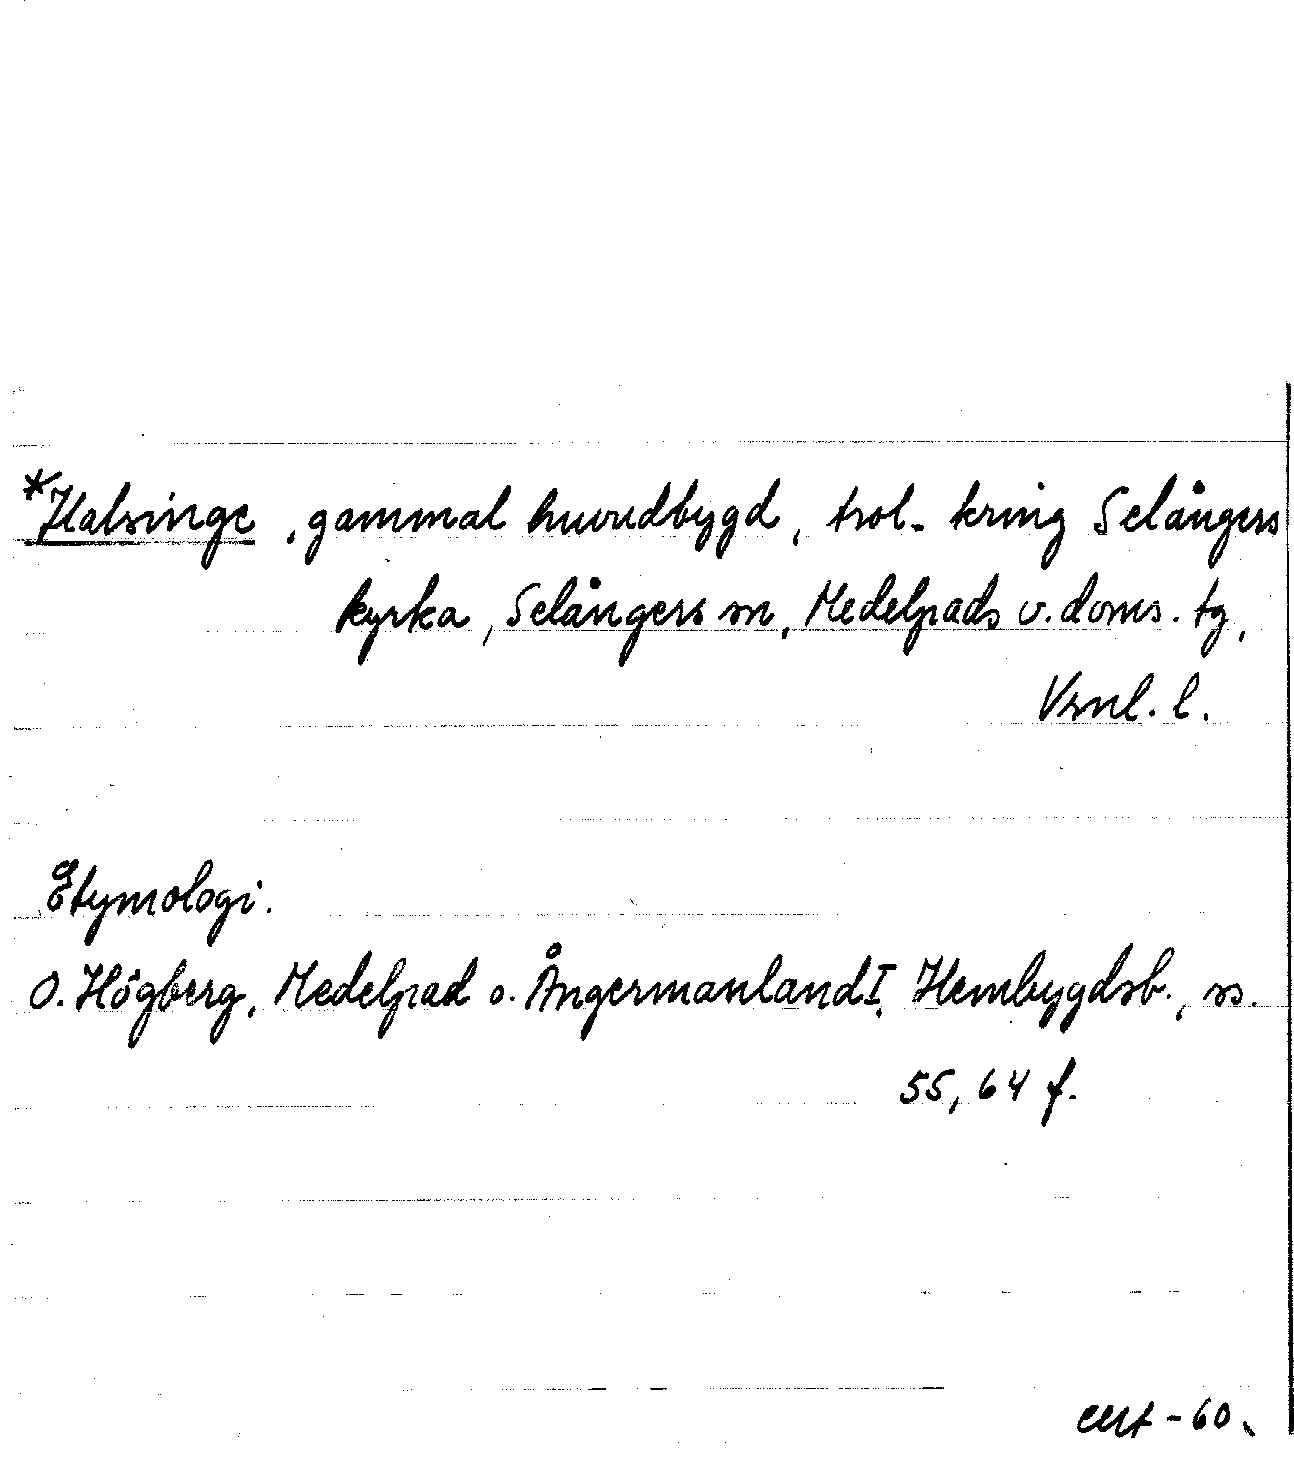 *Halsinge, gammal huvudbygd, trol. kring Selångers
kyrka, Selångers sn, Medelpads v. doms. tg,
Vrnl. l.
Etymologi.
O. Högberg, Medelpad o. Ångermanland I, Hembygdsb., ss.
55, 64 f.
-60.